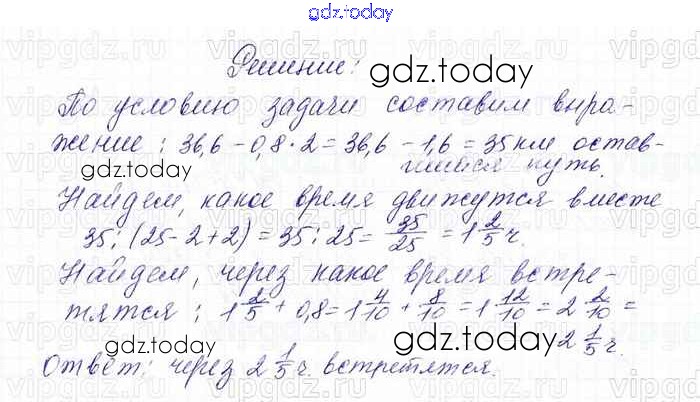 gdz.today
Решение:
gdz.today
По условию задачи составим выра-
жение: 36,6 - 0,8 · 2 = 36,6 - 1,6 = 35 км остав-
шийся путь.
gdz.today
Найдем, какое время движутся вместе
35 : (25 - 2 + 2) = 35 : 25 = 35/25 = 1 2/5 ч.
gdz.today
Найдем, через какое время встре-
тятся: 1 2/5 + 0,8 = 1 4/10 + 8/10 = 1 12/10 = 2 2/10 =
2 1/5 ч.
gdz.today
gdz.today
Ответ: через 2 1/5 ч. встретятся.